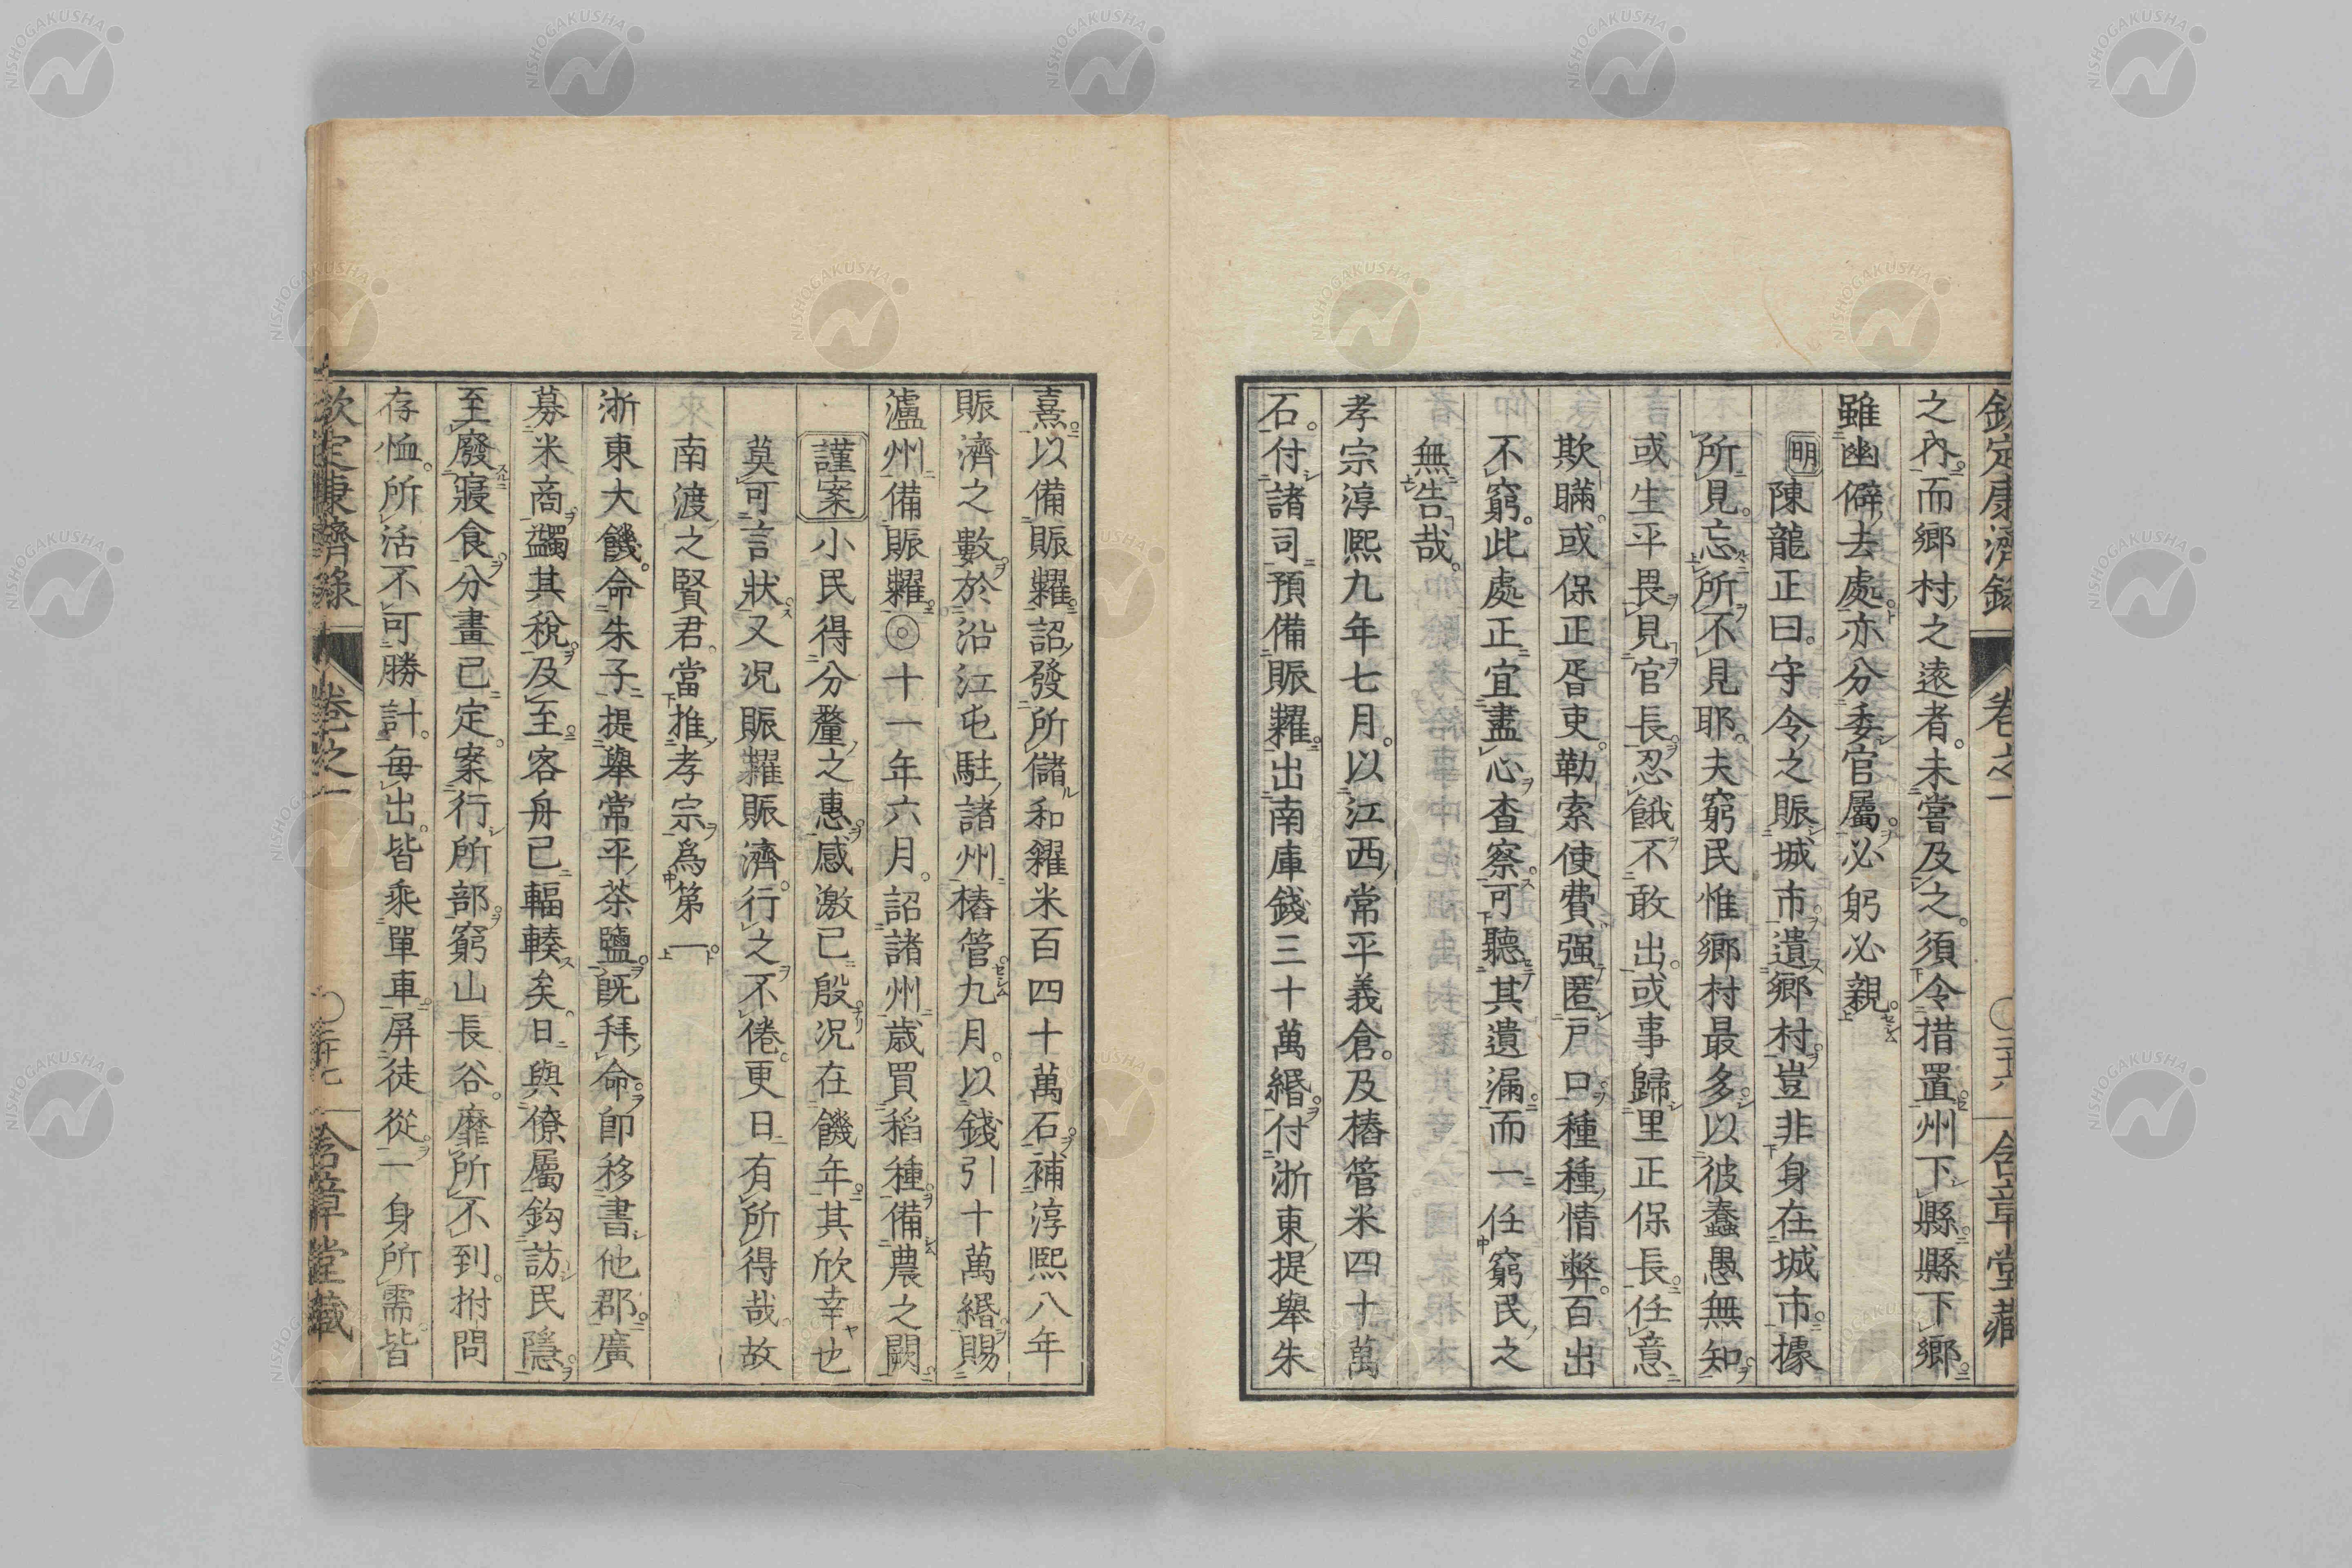 欽定康濟錄 卷之一 ○三十六 含章堂藏
之內。而鄉村之遠者。未嘗及之。須令措置州下縣。縣下鄉。
雖幽僻去處。亦分委官屬。必躬必親。
明 陳龍正曰。守令之賑城市。遺鄉村。豈非身在城市。據
所見。忘所不見耶。夫窮民惟鄉村最多。以彼蠢愚無知。
或生平畏見官長。忍餓不敢出。或事歸里正保長。任意
欺瞞。或保正胥吏。勒索使費。强匿戶口。種種情弊。百出
不窮。此處正宜盡心查察。可聽其遺漏。而一任窮民之
無告哉。
孝宗淳熙九年七月。以江西常平義倉。及樁管米四十萬
石。付諸司預備賑糶。出南庫錢三十萬緡。付浙東提舉朱
熹。以備賑糶。詔發所儲和糴米百四十萬石。補淳熙八年
賑濟之數。於沿江屯駐諸州樁管。九月。以錢引十萬緡。賜
瀘州備賑糶。◎十一年六月。詔諸州歲買稻種。備農之闕。
謹案 小民得分釐之惠。感激已殷。況在饑年。其欣幸也
莫可言狀。又況賑糶賑濟。行之不倦。更日有所得哉。故
南渡之賢君。當推孝宗爲第一。
浙東大饑。命朱子提舉常平茶鹽。旣拜命。卽移書他郡。廣
募米商。蠲其稅。及至。客舟已輻輳矣。日與僚屬鈎訪民隱。
至廢寢食。分畫已定。案行所部。窮山長谷。靡所不到。拊問
存恤。所活不可勝計。每出。皆乘單車。屏徒從。一身所需。皆
欽定康濟錄 卷之一 ○三十七 含章堂藏